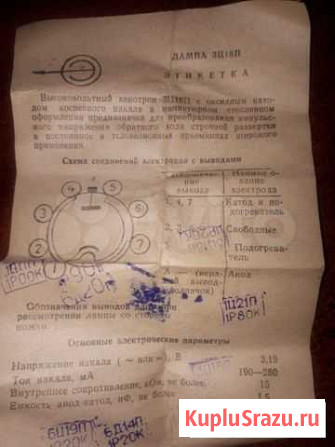 ЛАМПА 3Ц18П
ЭТИКЕТКА
Высоковольтный кенотрон 3Ц18П с оксидным като-
дом косвенного накала в миниатюрном стеклянном
оформлении предназначен для преобразования импульс-
ного напряжения обратного хода строчной развертки
в постоянное в телевизионных приемниках широкого
применения.
Схема соединений электродов с выводами
вывода
Наимено-
вание
электрода
1, 4, 7
Катод и по-
догреватель
Свободные
Подогрева-
тель
Анод
4
5
3
6
2
7
1
1Ц11П
1Р00К
6Д20П
1Ц21П
1Р80К
Обозначения выводов даны при
рассмотрении лампы со стороны
ножки.
Основные электрические параметры
Напряжение накала (~ или =), В 3,15
Ток накала, мА 190—230
Внутреннее сопротивление, кОм, не более 15
Емкость анод-катод, пФ, не более 1,5
6Д14П
1Р20К
KupluSrazu.ru